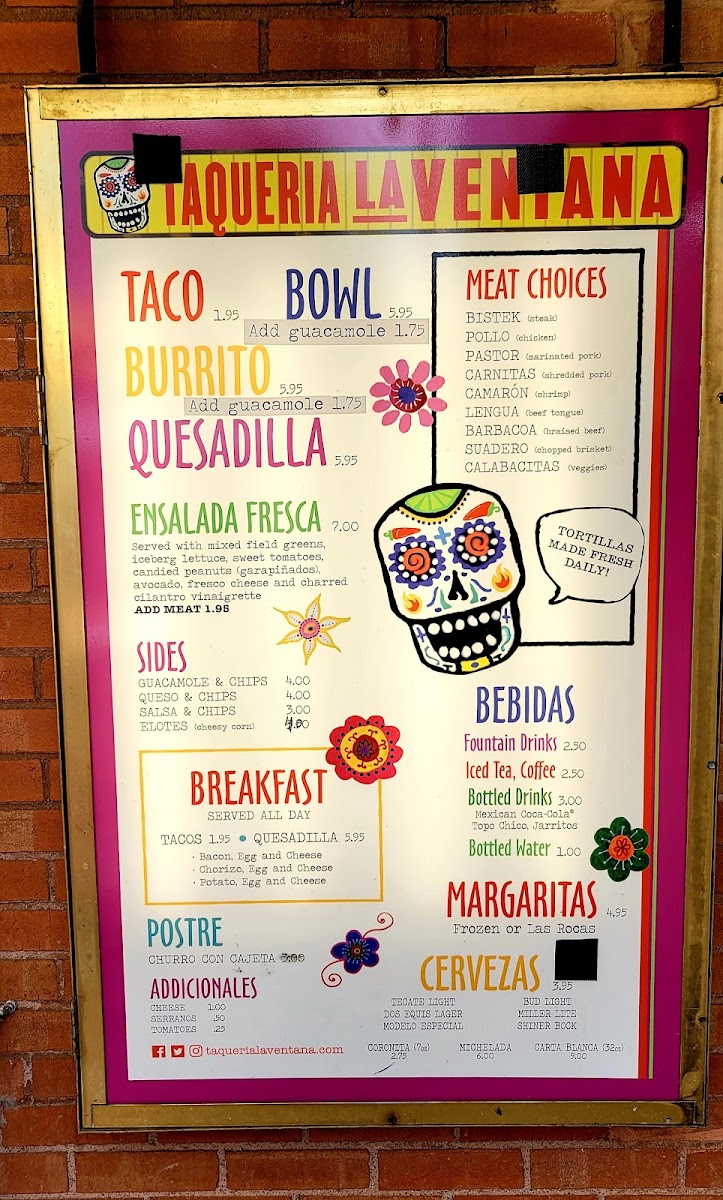 TAQUERIA LA VENTANA
TACO 1.95
BOWL 5.95
Add guacamole 1.75
BURRITO 5.95
Add guacamole 1.75
QUESADILLA 5.95
ENSALADA FRESCA 7.00
Served with mixed field greens,
iceberg lettuce, sweet tomatoes,
candied peanuts (garapiñados),
avocado, fresco cheese and charred
cilantro vinaigrette
ADD MEAT 1.95
MEAT CHOICES
BISTEK (steak)
POLLO (chicken)
PASTOR (marinated pork)
CARNITAS (shredded pork)
CAMARÓN (shrimp)
LENGUA (beef tongue)
BARBACOA (braised beef)
SUADERO (chopped brisket)
CALABACITAS (veggies)
TORTILLAS
MADE FRESH
DAILY!
SIDES
GUACAMOLE & CHIPS 4.00
QUESO & CHIPS 4.00
SALSA & CHIPS 3.00
ELOTES (cheesy corn)
BREAKFAST
SERVED ALL DAY
TACOS 1.95 • QUESADILLA 5.95
· Bacon, Egg and Cheese
· Chorizo, Egg and Cheese
· Potato, Egg and Cheese
POSTRE
CHURRO CON CAJETA 3.00
ADDICIONALES
CHEESE 1.00
SERRANOS .50
TOMATOES .25
taquerialaventana.com
BEBIDAS
Fountain Drinks 2.50
Iced Tea, Coffee 2.50
Bottled Drinks 3.00
Mexican Coca-Cola®
Topo Chico, Jarritos
Bottled Water 1.00
MARGARITAS 4.95
Frozen or Las Rocas
CERVEZAS 3.95
TECATE LIGHT BUD LIGHT
DOS EQUIS LAGER MILLER LITE
MODELO ESPECIAL SHINER BOCK
CORONITA (7oz) MICHELADA CARTA BLANCA (32oz)
2.75 6.00 9.00